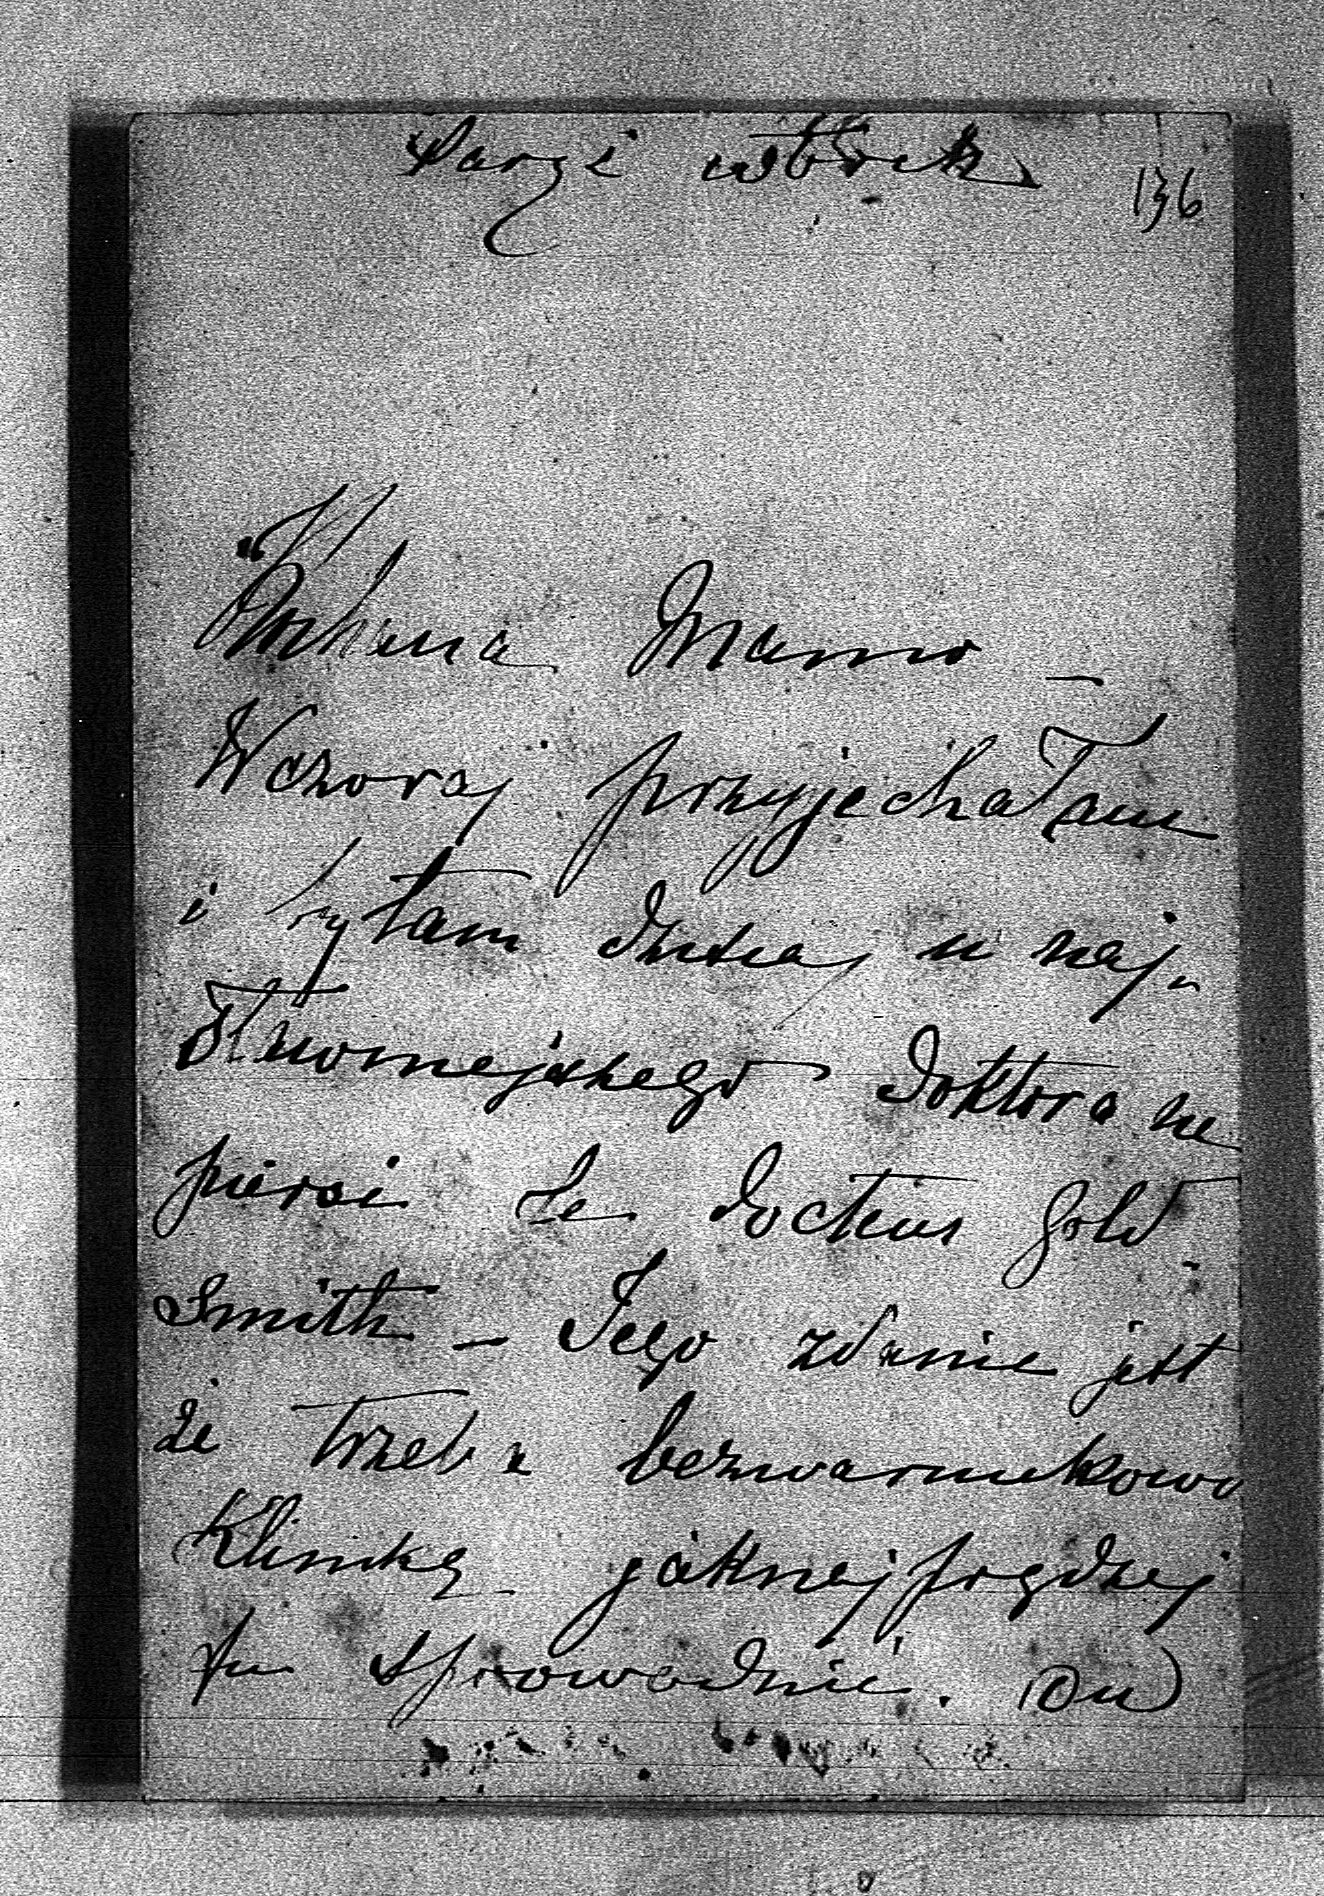 Paryż wtorek
136
Kochana Mamo –
Wczoraj przyjechałam
i byłam dzisiaj u naj-
sławniejszego doktora na
piersi le docteur Gold-
Smith – Jego zdanie jest
że trzeba bezwarunkowo
Klimkę jaknajprędzej
tu sprowadzić. On